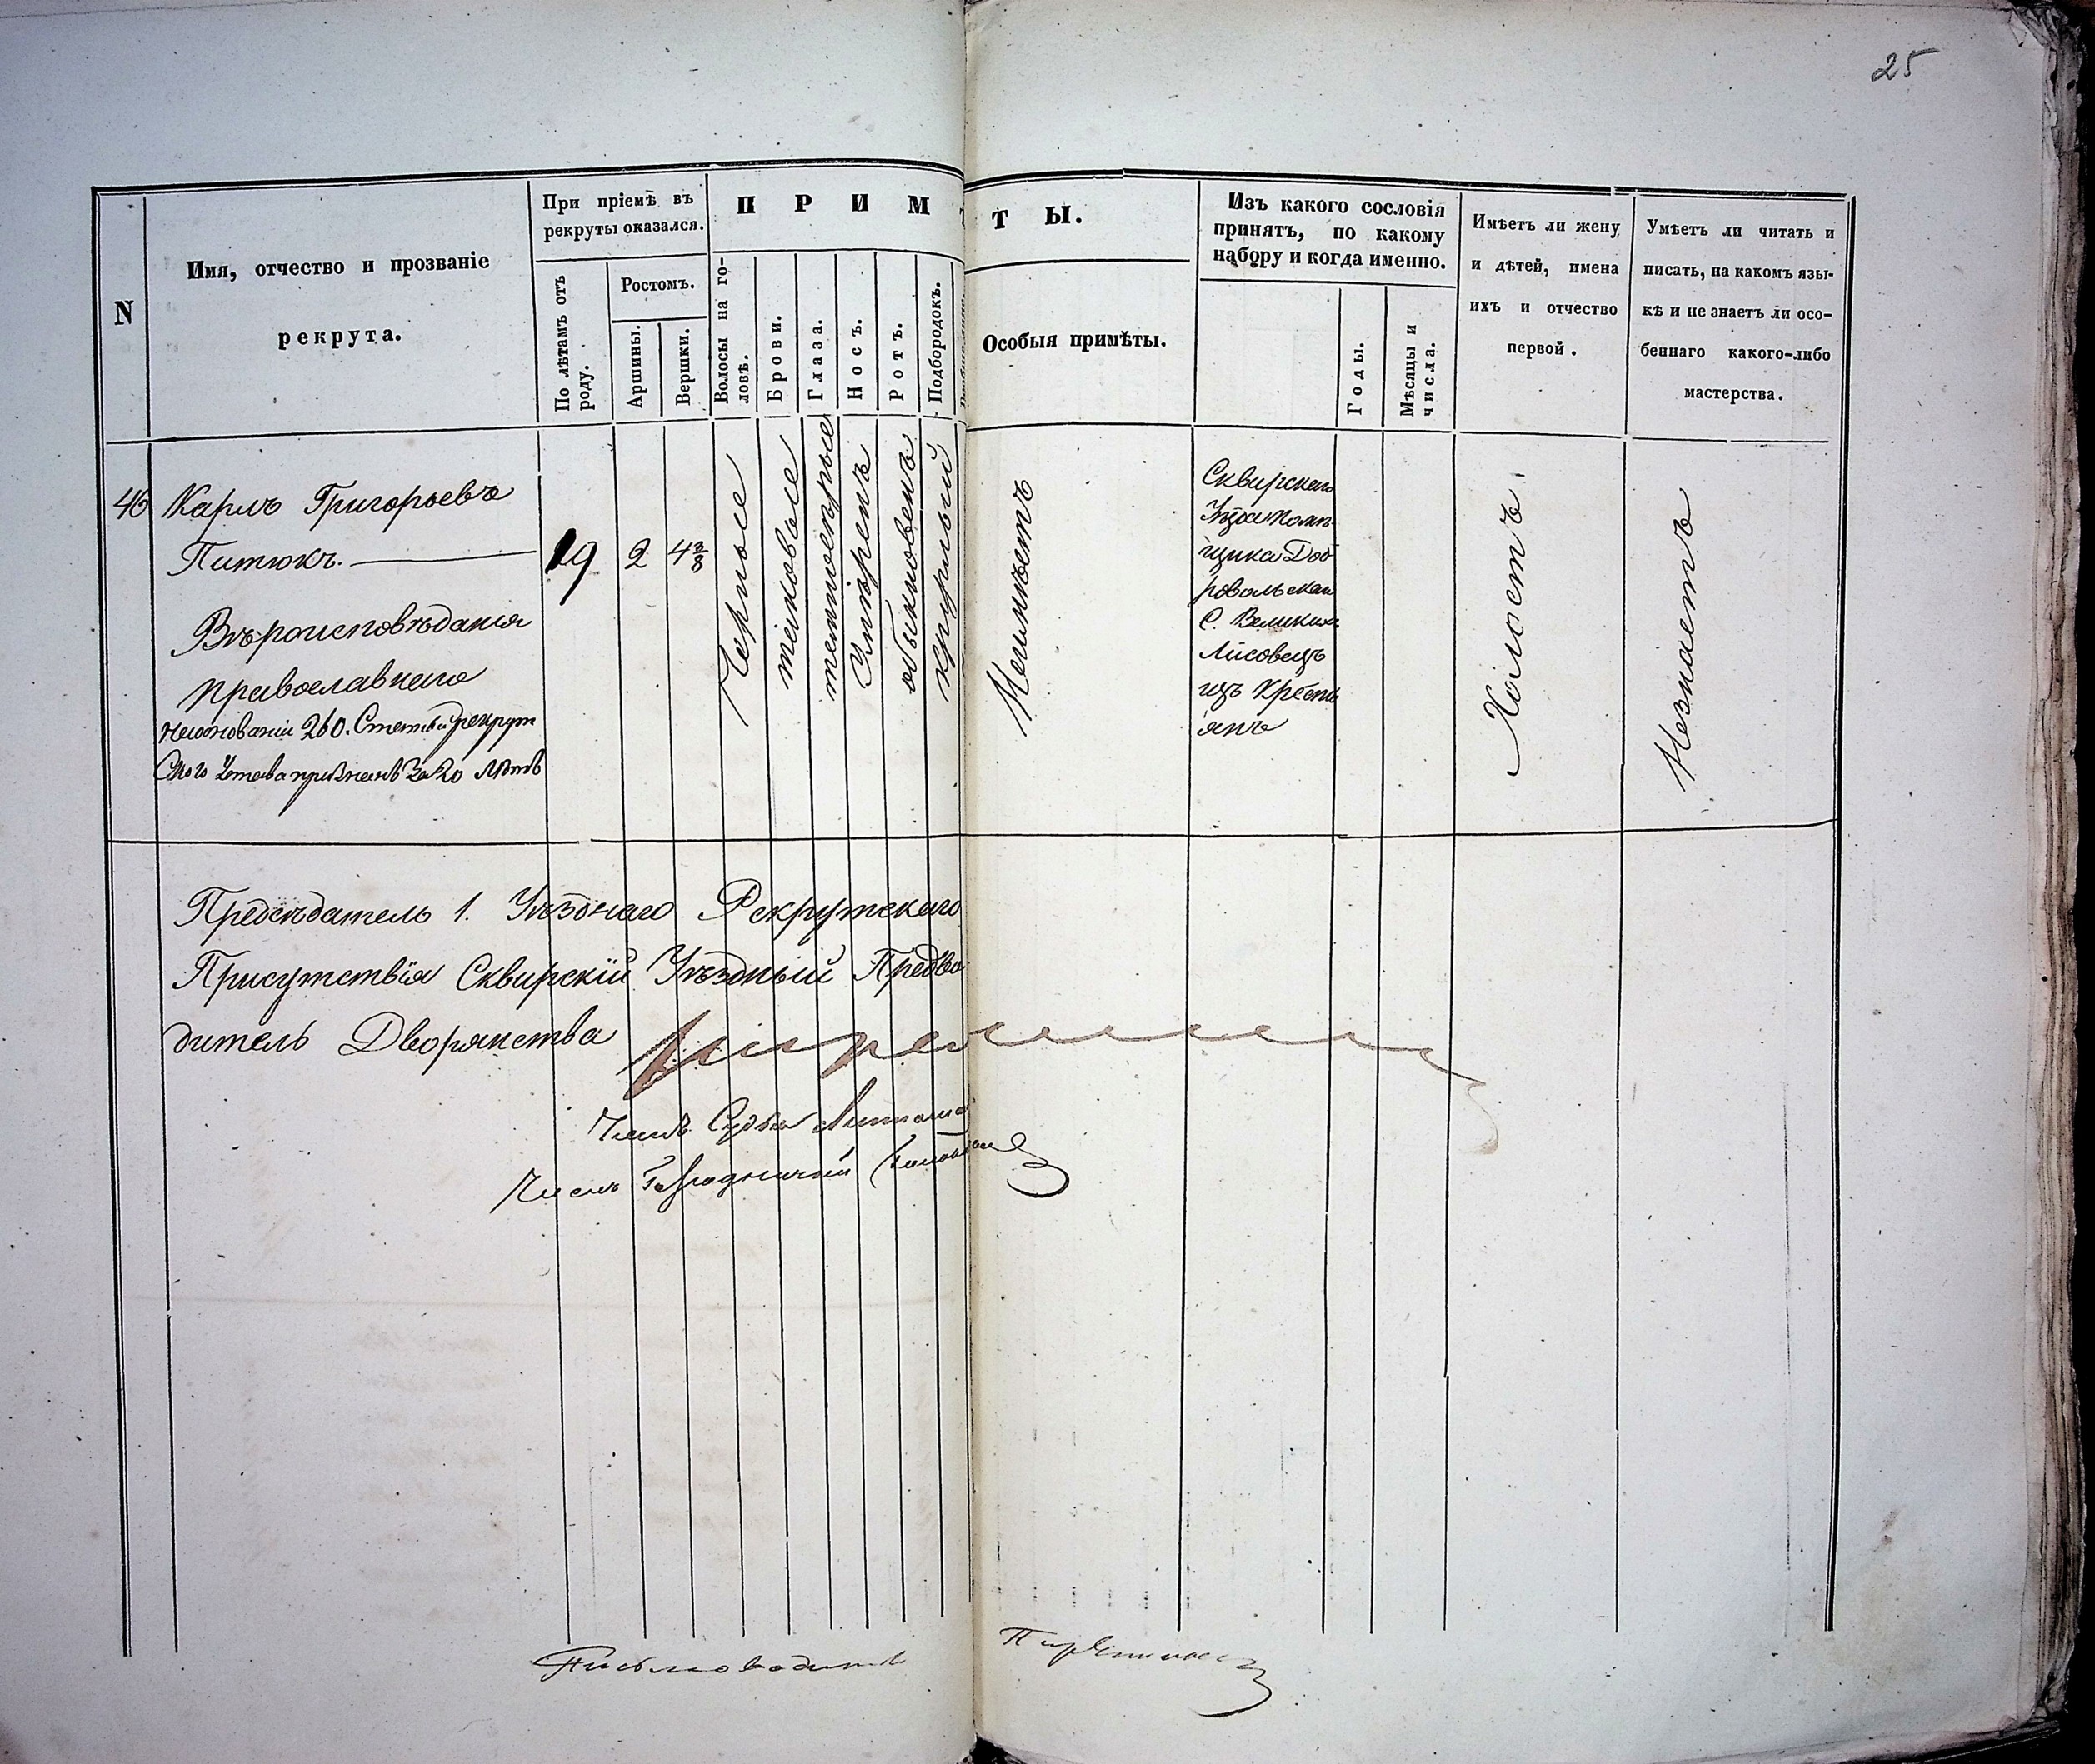 25
N
Имя, отчество и прозваніе
рекрута.
При пріемѣ въ
рекруты оказался.
По лѣтамъ отъ
роду.
Ростомъ.
Аршины.
Вершки.
ПРИМ
ТЫ.
Волосы на го-
ловѣ.
Брови.
Глаза.
Носъ.
Ротъ.
Подбородокъ.
Особыя примѣты.
Изъ какого сословія
принятъ, по какому
набору и когда именно.
Годы.
Мѣсяцы и
числа.
Имѣетъ ли жену
и дѣтей, имена
ихъ и отчество
первой.
Умѣетъ ли читать и
писать, на какомъ язы-
кѣ и не знаетъ ли осо-
беннаго какого-либо
мастерства.
46
Карлъ Григорьевъ
Питюкъ.
Вѣроисповѣданія
православнаго
260. Статьи рекрут
ского Устава за 20 лѣтъ
19
2
4 3/8
Черные
темносѣрые
Умѣренъ
обыкновенъ
круглый
Неимѣетъ
Сквирскаго
Уѣзда помѣ
щика Доб
ровольскаго
С. Великихъ
Лисовецъ
изъ Кресть
янъ
Холостъ
Незнаетъ
Предсѣдатель 1. Уѣзднаго Рекрутскаго
Присутствія Сквирскій Уѣздный Предво
дитель Дворянства
Членъ Судья
Членъ Городничій
Письмоводитель